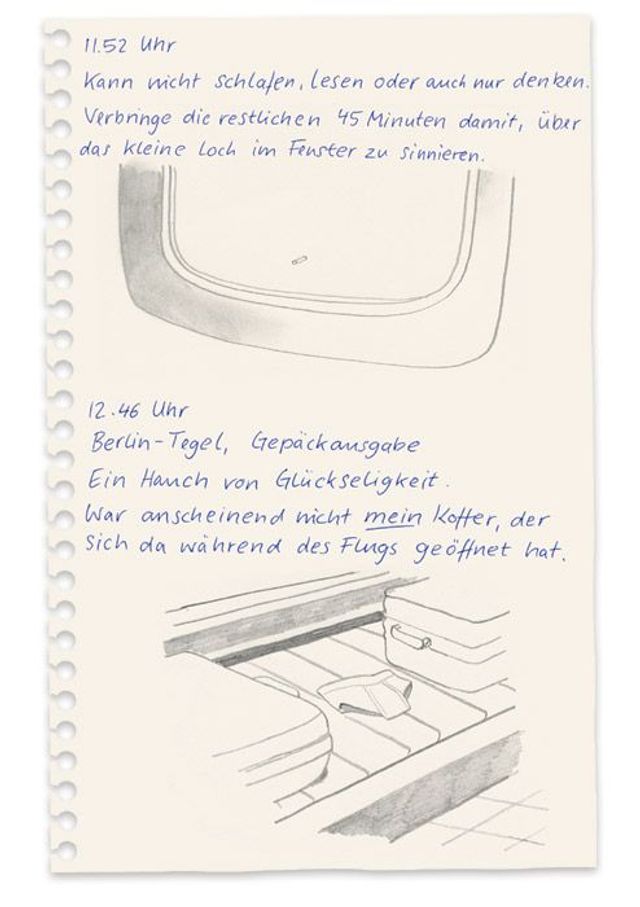 11.52 Uhr
Kann nicht schlafen, lesen oder auch nur denken.
Verbringe die restlichen 45 Minuten damit, über
das kleine Loch im Fenster zu sinnieren.
12.46 Uhr
Berlin-Tegel, Gepäckausgabe
Ein Hauch von Glückseligkeit.
War anscheinend nicht mein Koffer, der
sich da während des Flugs geöffnet hat.